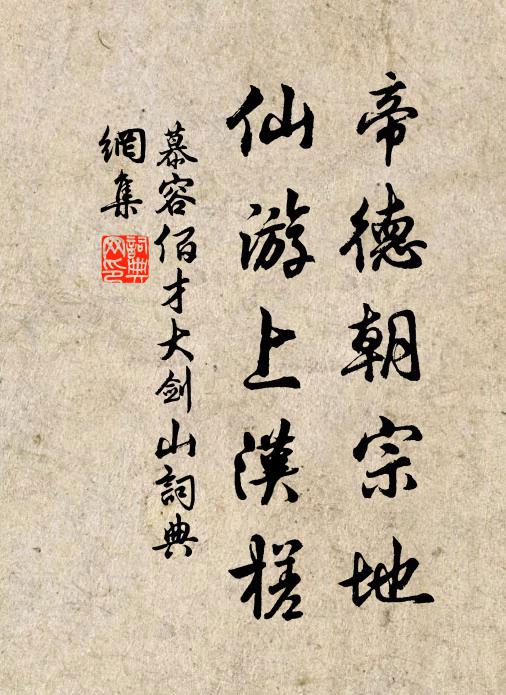 帝德朝宗地
仙游上漢槎
慕容佰才大劍山詞典
網集
詞典
网印